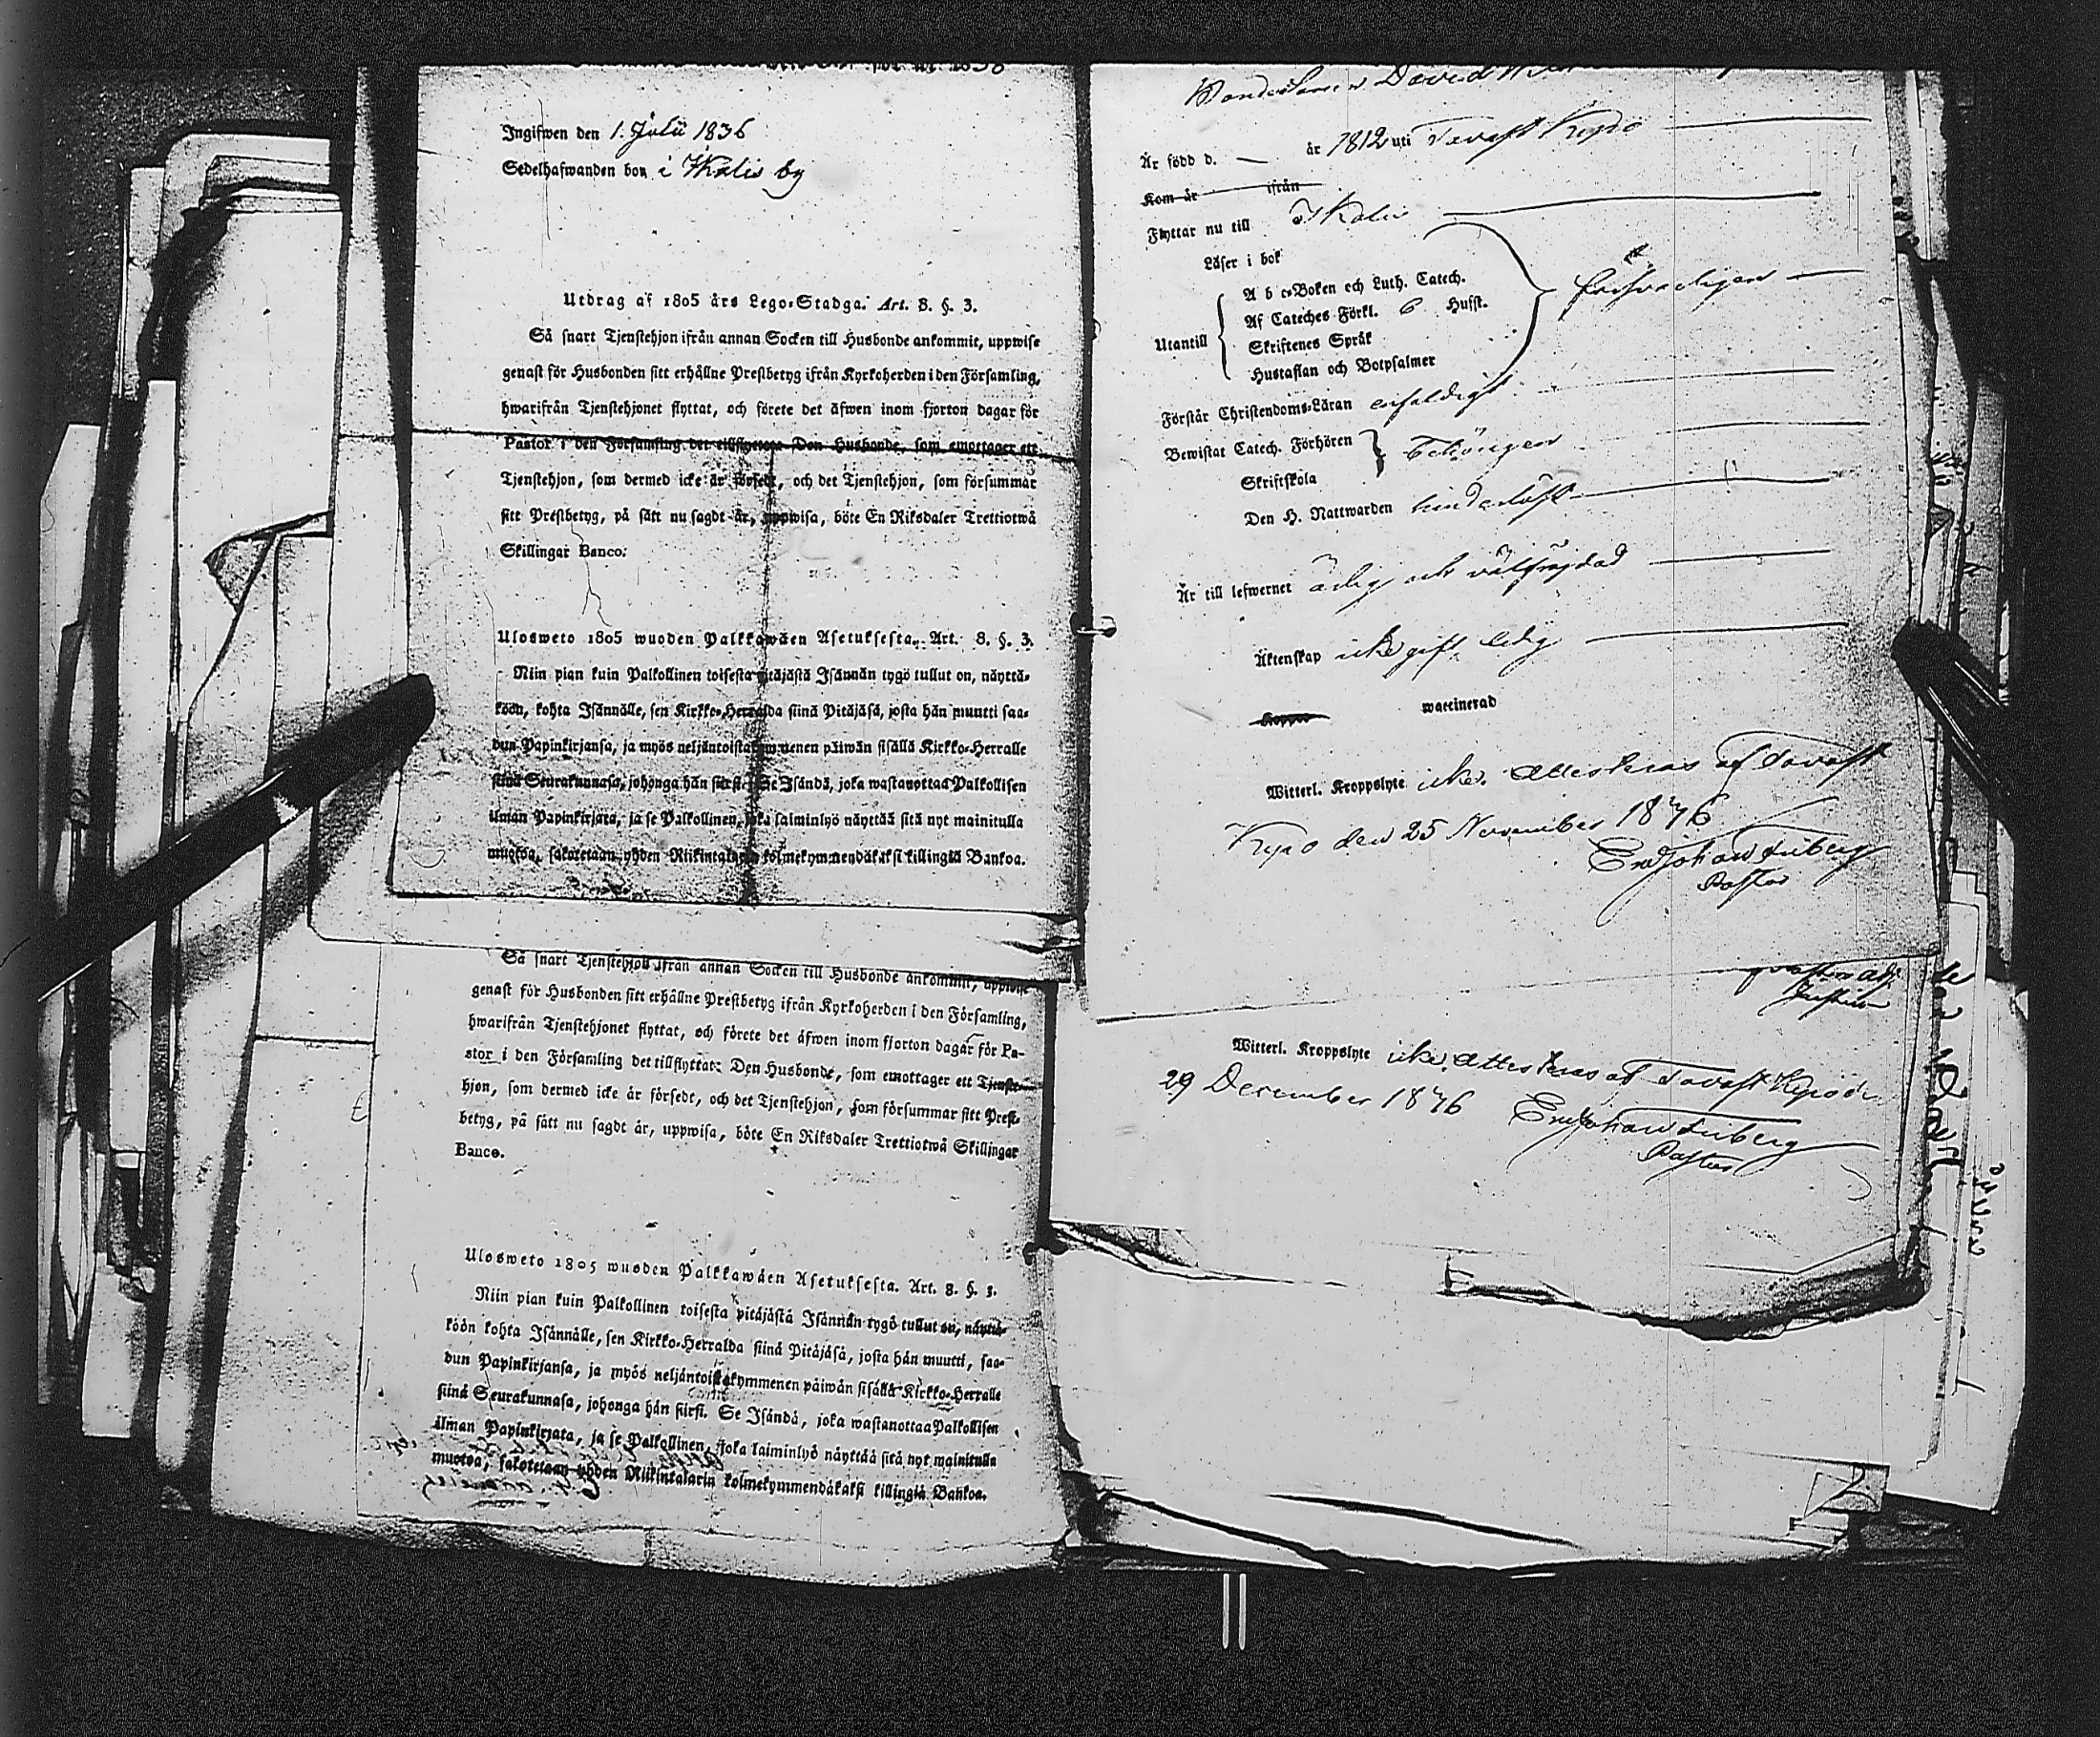 Ingifwen den 1. Julii 1836
Sedelhafwanden bor i Ikalis by
Utdrag af 1805 års Lego-Stadga. Art. 8. §. 3.
Så snart Tjenstehjon ifrån annan Socken till Husbonde ankommit, uppwise
genast för Husbonden sitt erhållne Prestbetyg ifrån Kyrkoherden i den Församling,
hwarifrån Tjenstehjonet flyttat, och förete det äfwen inom fjorton dagar för
Pastor i den Församling det tillflyttat. Den Husbonde, som emottager ett
Tjenstehjon, som dermed icke är försedt, och det Tjenstehjon, som försummar
sitt Prestbetyg, på sätt nu sagdt är, uppwisa, böte En Riksdaler Trettiotwå
Skillingar Banco.
Ulosweto 1805 wuoden Palkkawäen Asetuksesta. Art. 8. §. 3.
Niin pian kuin Palkollinen toisesta pitäjästä Isännän tygö tullut on, näyttä-
köön, kohta Isännälle, sen Kirkko-Herralda siinä Pitäjäsä, josta hän muutti saa-
dun Papinkirjansa, ja myös neljäntoistakymmenen päiwän sisällä Kirkko-Herralle
siinä Seurakunnasa, johonga hän siirsi. Se Isändä, joka wastanottaa Palkollisen
ilman Papinkirjata, ja se Palkollinen, joka laiminlyö näyttää sitä nyt mainitulla
muotoa, sakotetaan yhden Riikintalarin kolmekymmendäkaksi killingiä Bankoa.
Så snart Tjenstehjon ifrån annan Socken till Husbonde ankommit, uppwise
genast för Husbonden sitt erhållne Prestbetyg ifrån Kyrkoherden i den Församling,
hwarifrån Tjenstehjonet flyttat, och förete det äfwen inom fjorton dagar för Pa-
stor i den Församling det tillflyttat. Den Husbonde, som emottager ett Tjenste-
hjon, som dermed icke är försedt, och det Tjenstehjon, som försummar sitt Prest-
betyg, på sätt nu sagdt är, uppwisa, böte En Riksdaler Trettiotwå Skillingar
Banco.
Ulosweto 1805 wuoden Palkkawäen Asetuksesta. Art. 8. §. 3.
Niin pian kuin Palkollinen toisesta pitäjästä Isännän tygö tullut on, näyttä-
köön kohta Isännälle, sen Kirkko-Herralda siinä Pitäjäsä, josta hän muutti, saa-
dun Papinkirjansa, ja myös neljäntoistakymmenen päiwän sisällä Kirkko-Herralle
siinä Seurakunnasa, johonga hän siirsi. Se Isändä, joka wastanottaa Palkollisen
ilman Papinkirjata, ja se Palkollinen, joka laiminlyö näyttää sitä nyt mainitulla
muotoa, sakotetaan yhden Riikintalarin kolmekymmendäkaksi killingiä Bankoa.
Bondesonen David
Är född d. — år 1812 uti Tavast Kyro
Kom år ifrån
Flyttar nu till Ikalis
Läser i bok
Utantill
A b c-Boken och Luth. Catech.
Af Cateches Förkl. 6 Hufst.
Skriftenes Språk
Hustaflan och Botpsalmer
försvarligen
Förstår Christendoms-Läran enfaldigt
Bewistat Catech. Förhören
Skriftskola
behörigen
Den H. Nattwarden hinderlöst
Är till lefwernet ärlig och välfräjdad
Äktenskap icke gift, ledig
waccinerad
Witterl. Kroppslyte icke. Attesteras af Tavast
Kyro den 25 November 1836
Johan Friberg
Pastor
Witterl. Kroppslyte icke. Attesteras af Tavast Kyro d.
29 December 1836
Johan Friberg
Pastor